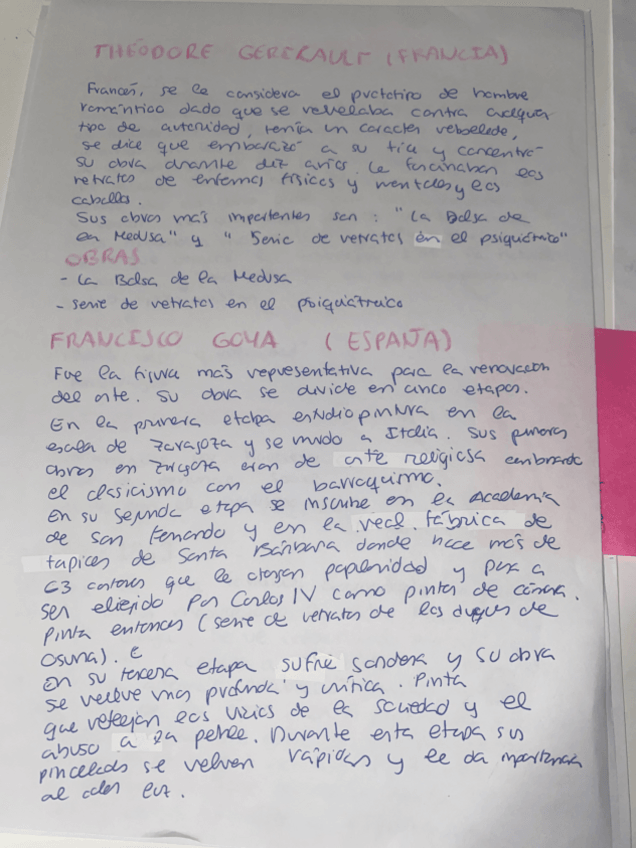 THÉODORE GERERAULT (FRANCIA)
Francés, se le considera el prototipo de hombre
romántico dado que se rebelaba contra cualquier
tipo de autoridad, tenía un caracter rebelede,
se dice que embarazó a su tía y concentró
su obra durante diez años. Le fascinaban los
retratos de enfermos físicos y mentales y los
caballos.
Sus obras más importantes son: "La Balsa de
la Medusa" y "Serie de retratos en el psiquiátrico"
OBRAS
- La Balsa de la Medusa
- serie de retratos en el psiquiátrico
FRANCISCO GOYA (ESPAÑA)
Fue la figura más representativa para la renovación
del arte. Su obra se divide en cinco etapas.
En la primera etapa estudio pintura en la
escala de Zaragoza y se mudó a Italia. Sus primeras
obras en Zaragoza eran de arte religiosa combinando
el clasicismo con el barroquismo.
En su segunda etapa se inscribe en la Academia
de San Fernando y en la real fábrica de
tapices de Santa Bárbara donde hace más de
63 cartones que le otorgan popularidad y pasa a
ser eliejido por Carlos IV como pintor de cámara.
Pinta entonces (serie de retratos de los duques de
Osuna). E
en su tercera etapa sufre sordera y su obra
se vuelve mas profunda y crítica. Pinta
que reflejan los vicios de la sociedad y el
abuso a la plebe. Durante esta etapa sus
pinceladas se vuelven rápidas y le da importancia
al color luz.